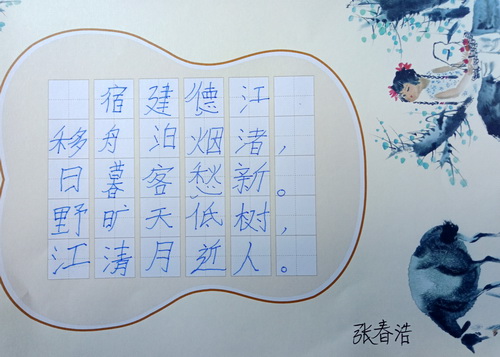 宿建德江
移舟泊烟渚，
日暮客愁新。
野旷天低树，
江清月近人。
张春浩